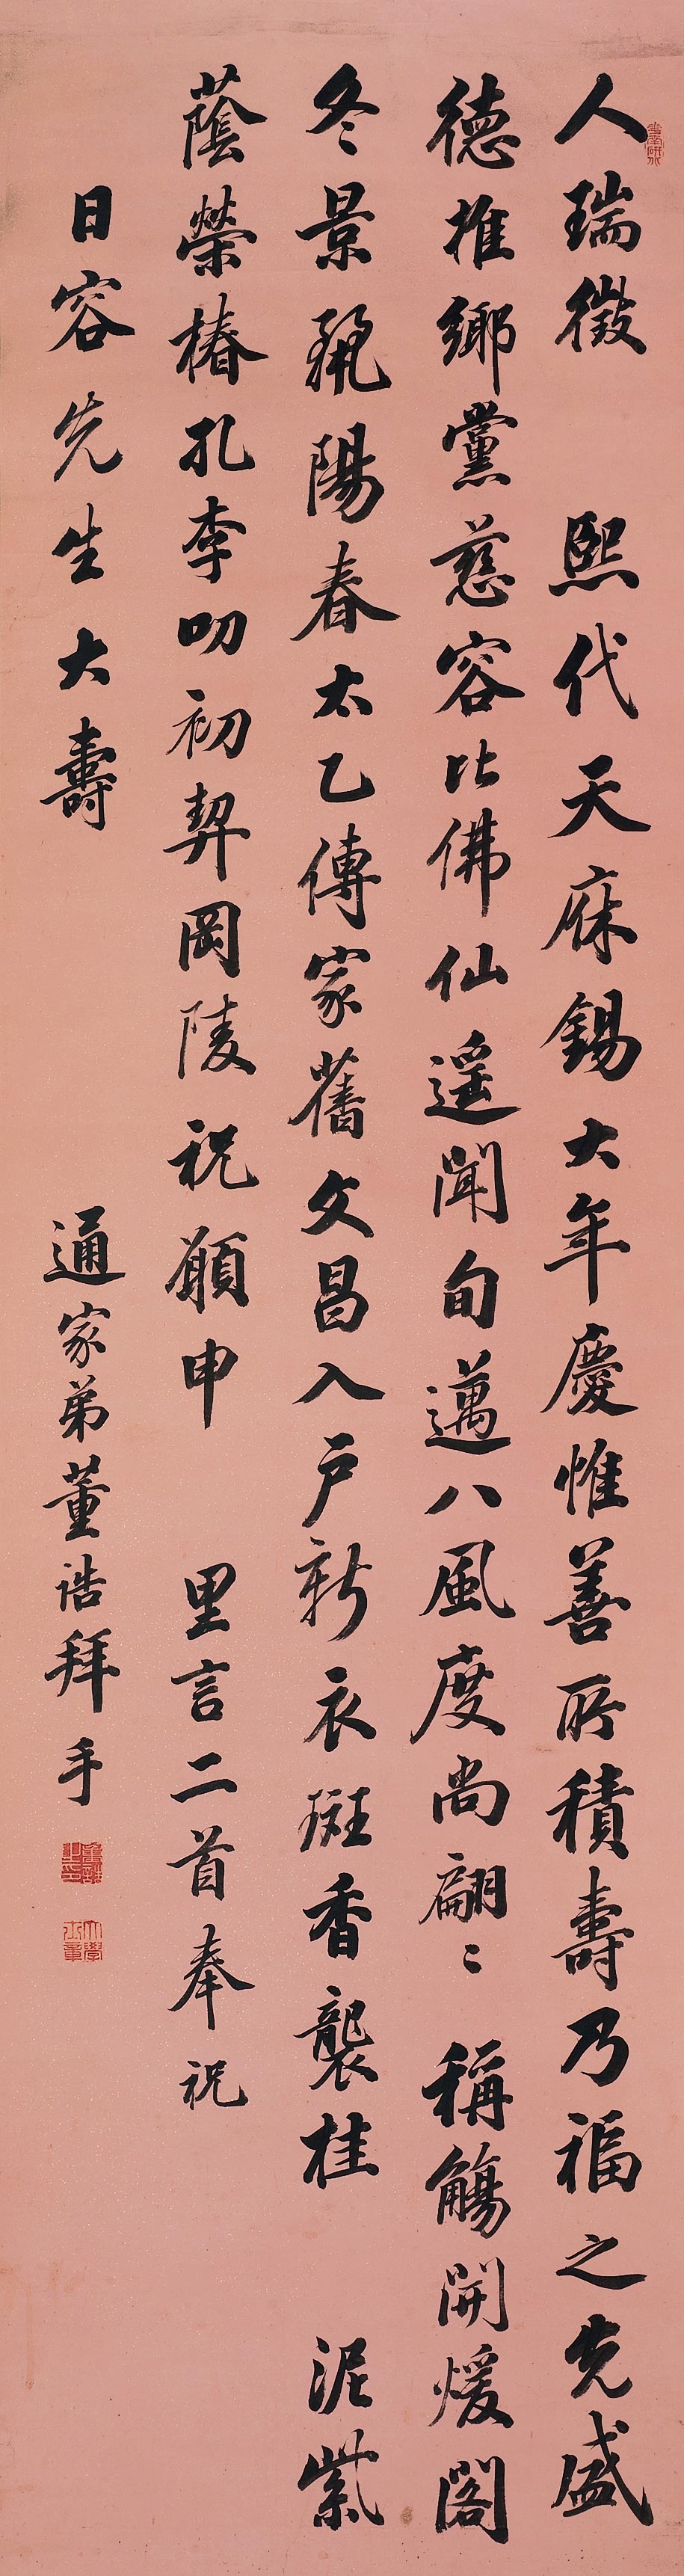 人瑞徵 熙代天庥錫大年慶惟善所積壽乃福之先盛
德推鄉黨慈容比佛仙遥聞旬邁八風度尚翩〻 稱觴開煖閣
冬景競陽春太乙傳家舊文昌入戶新衣斑香襲桂 泥紫
蔭榮椿孔李叨初契岡陵祝願申 里言二首奉祝
日容先生大壽
通家弟董誥拜手